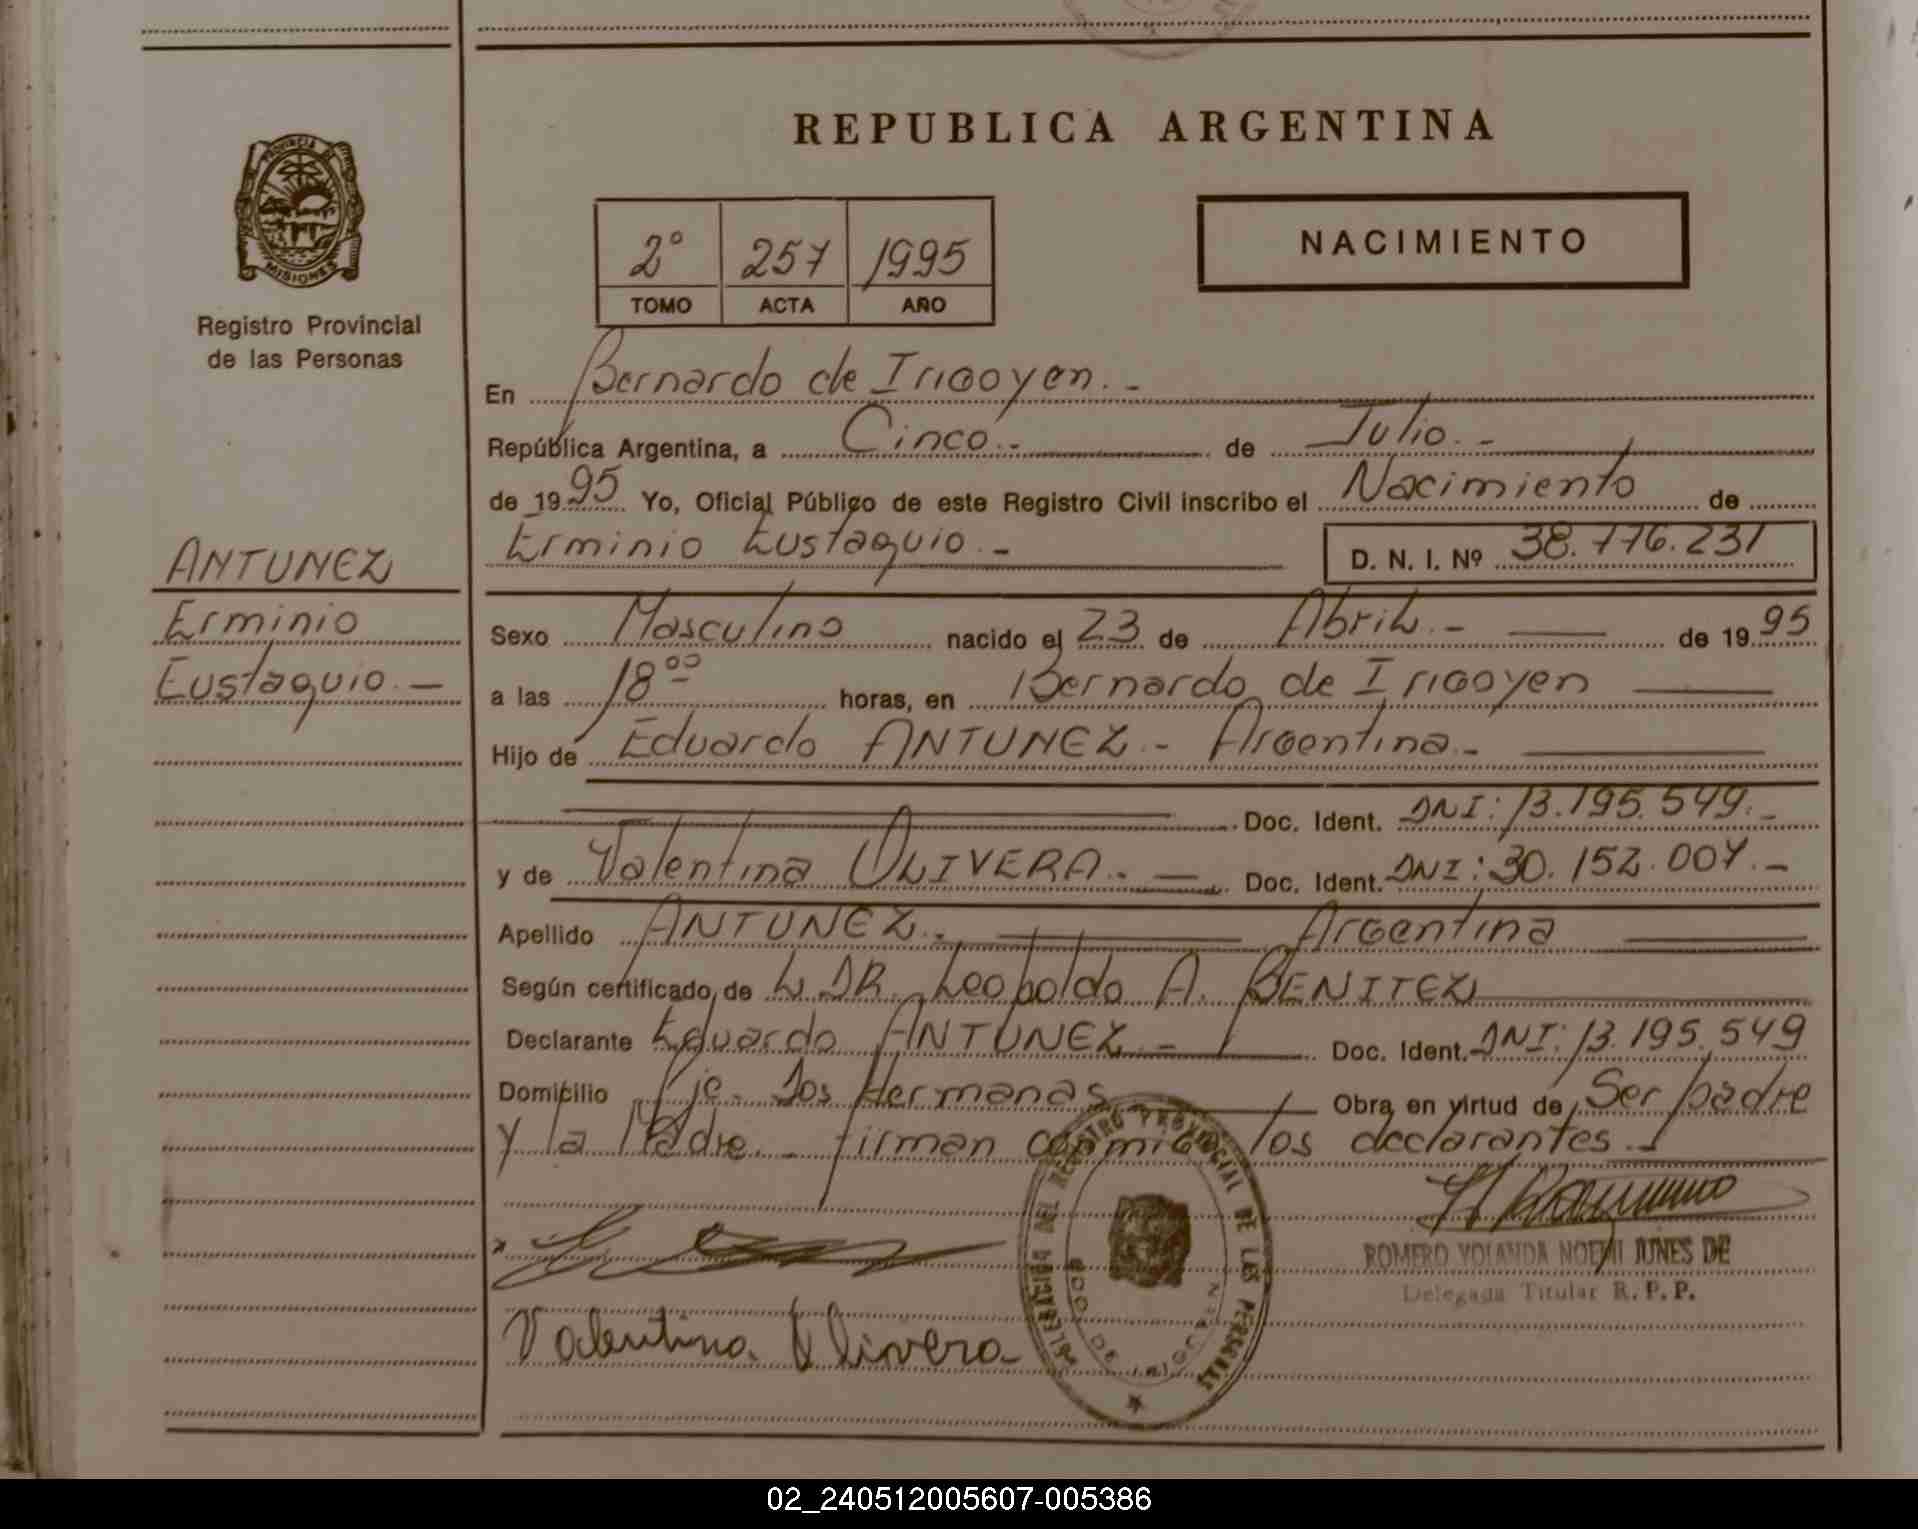 PROVINCIA DE
MISIONES
Registro Provincial
de las Personas
ANTUNEZ
Erminio
Eustaquio. —
REPUBLICA ARGENTINA
2° 257 1995
TOMO ACTA AÑO
NACIMIENTO
En Bernardo de Irigoyen. -
República Argentina, a Cinco. - de Julio. -
de 1995 Yo, Oficial Público de este Registro Civil inscribo el Nacimiento de
Erminio Eustaquio. - D. N. I. Nº 38.776.231
Sexo Masculino nacido el 23 de Abril. - de 1995
a las 18 00 horas, en Bernardo de Irigoyen
Hijo de Eduardo ANTUNEZ. - Argentina. -
Doc. Ident. DNI: 13.195.549. -
y de Valentina OLIVERA. - Doc. Ident. DNI: 30.152.007. -
Apellido ANTUNEZ. Argentina
Según certificado de L DR. Leopoldo A. BENITEZ
Declarante Eduardo ANTUNEZ. - Doc. Ident. DNI: 13.195.549
Domicilio Pje. Dos Hermanas Obra en virtud de Ser padre
y la Madre. - firman conmigo los declarantes. -
DELEGACION DEL REGISTRO PROVINCIAL DE LAS PERSONAS
BDO. DE IRIGOYEN
ROMERO YOLANDA NOEMI JUNES DE
Delegada Titular R.P.P.
Valentina Olivera
02_240512005607-005386